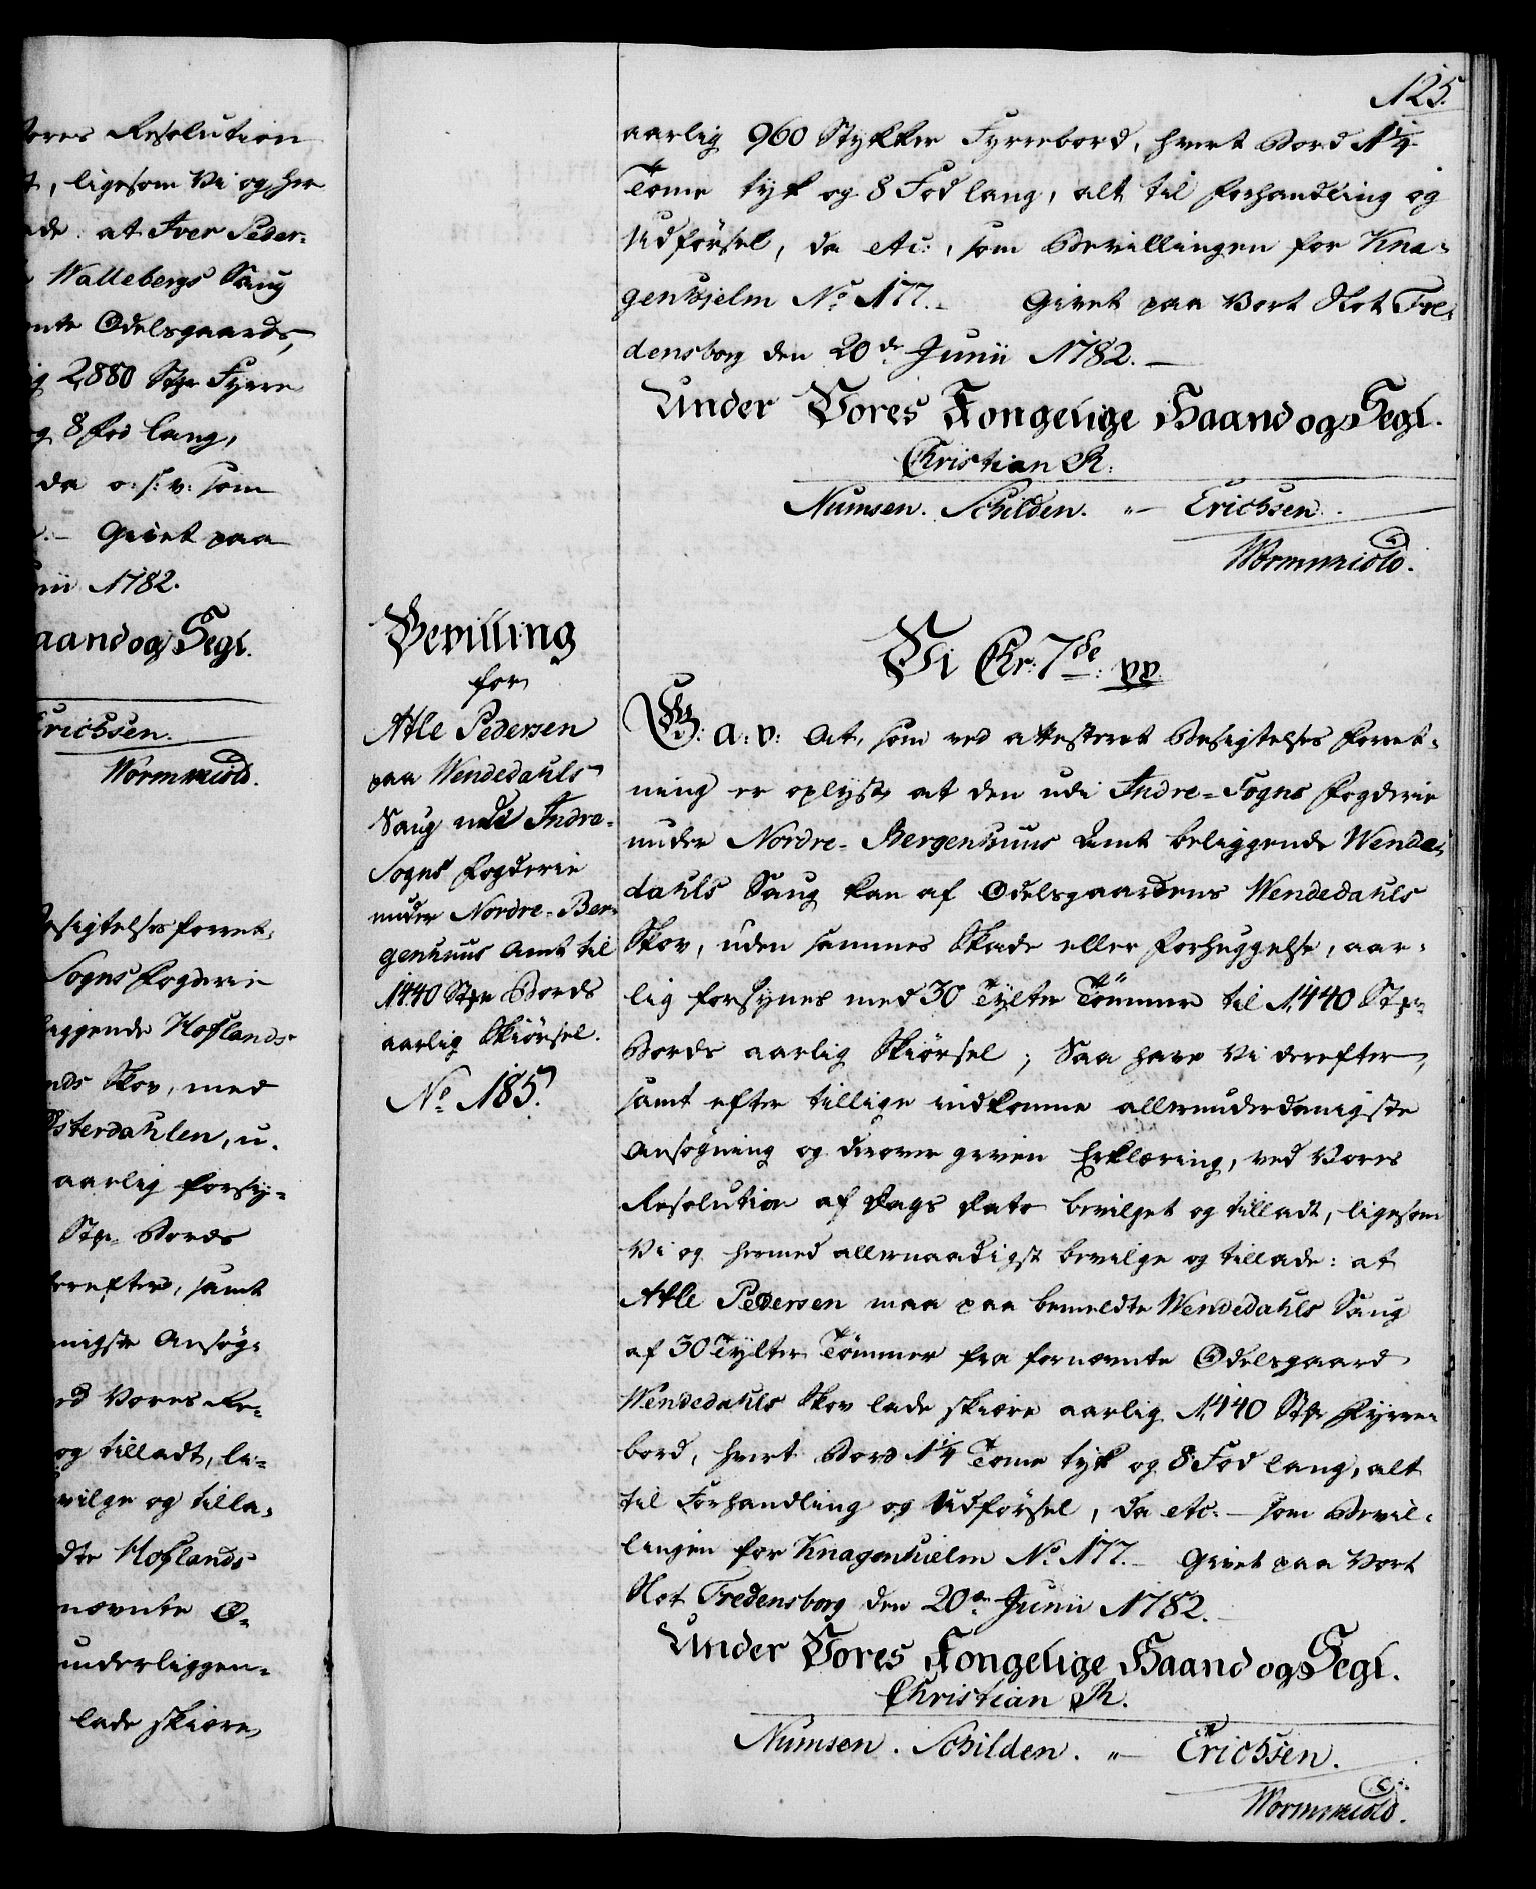 ores Resolution
t, ligesom Vi og her
ade: at Iver Peder-
Wallebergs Saug
ente Odelsgaards,
ig 2,880 Stkr Fyrre
g 8 fod lang,
da o: s: v: som
Givet paa
nii 1782.
aand og Segl.
Erichsen.
Wormskiold.
esigtelses forret-
Sogns Fogderie
liggende Hoflands
nds Skov, med
Østerdahlen, u-
aarlig forsy-
Stkr Bords
erefter, samt
nigste Ansøg-
ed Vores Re-
og tilladt, li-
vilge og tilla-
dte Hoflands
nævnte O-
underliggen-
lade skiære
125.
aarlig 960 Stykker Fyrrebord, hvert Bord 1¼
Tome tyk og 8 Fod lang, alt til forhandling og
Udførsel, da etc:, som Bevillingen for Kna-
genhielm No 177. Givet paa Vort Slot Fre-
densborg den 20de Junii 1782.
Under Vores Kongelige Haand og Segl.
Christian R.
Numsen. Schilden. „ Erichsen.
Wormskiold.
Bevilling
for
Atle Pedersen
paa Wendedahls
Saug udi Indre-
Sogns Fogderie
under Nordre-Ber-
genhuus Amt til
1440 Stkr Bords
aarlig Skiørsel.
No 185.
Vi Chr: 7de: pp
G: a: v: At, som ved attesteret Besigtelses forret-
ning er oplyst, at den udi Indre-Sogns Fogderie
under Nordre-Bergenhuus Amt beliggende Wende-
dahls Saug kan af Odelsgaardens Wendedahls
Skov, uden sammes Skade eller forhuggelse, aar-
lig forsynes med 30 Tylter Tømmer til 1,440 Stkr
Bords aarlig Skiørsel; Saa have Vi derefter,
samt efter tillige indkomne allerunderdanigste
Ansøgning og derover given Erklæring, ved Vores
Resolution af Dags Dato bevilget og tilladt, ligesom
Vi og hermed allernaadigst bevilge og tillade: at
Atle Pedersen maa paa bemeldte Wendedahls Saug
af 30 Tylter Tømmer fra fornævnte Odelsgaard
Wendedahls Skov lade skiære aarlig 1,440 Stkr Fyrre-
bord, hvert Bord 1¼ Tome tyk og 8 Fod lang, alt
til Forhandling og Udførsel, da etc. – som Bevil-
lingen for Knagenhielm No 177. Givet paa Vort
Slot Fredensborg den 20de Junii 1782.
Under Vores Kongelige Haand og Segl.
Christian R.
Numsen. Schilden. „ Erichsen.
Wormskiold.